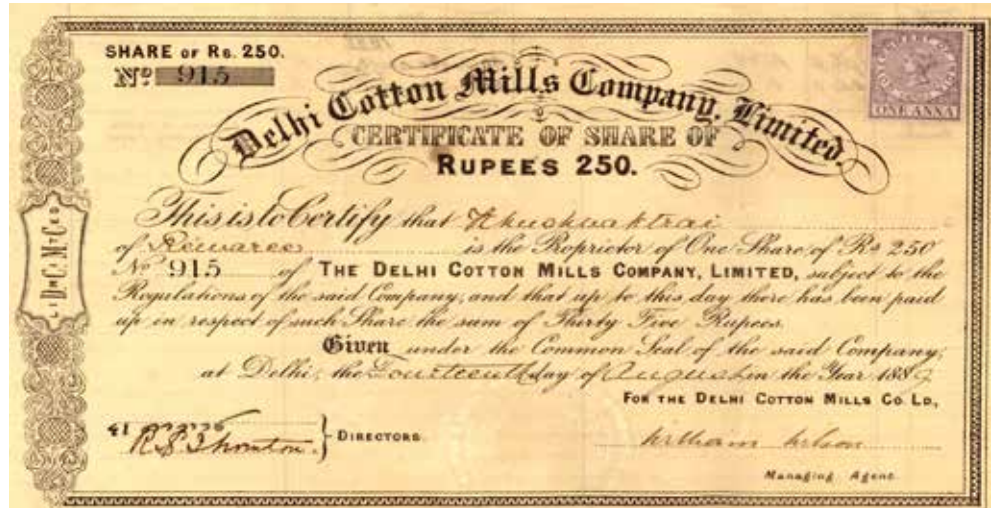 SHARE OF Rs. 250.
No 915
ONE ANNA
Delhi Cotton Mills Company, Limited.
CERTIFICATE OF SHARE OF
RUPEES 250.
This is to Certify that Khushwaktrai
of Rewaree is the Proprietor of One Share of Rs 250
No 915 of THE DELHI COTTON MILLS COMPANY, LIMITED, subject to the
Regulations of the said Company, and that up to this day there has been paid
up in respect of such Share the sum of Thirty Five Rupees.
Given under the Common Seal of the said Company,
at Delhi, the Fourteenth day of August in the Year 1889
FOR THE DELHI COTTON MILLS CO. LD,
DIRECTORS.
William Wilson
Managing Agent.